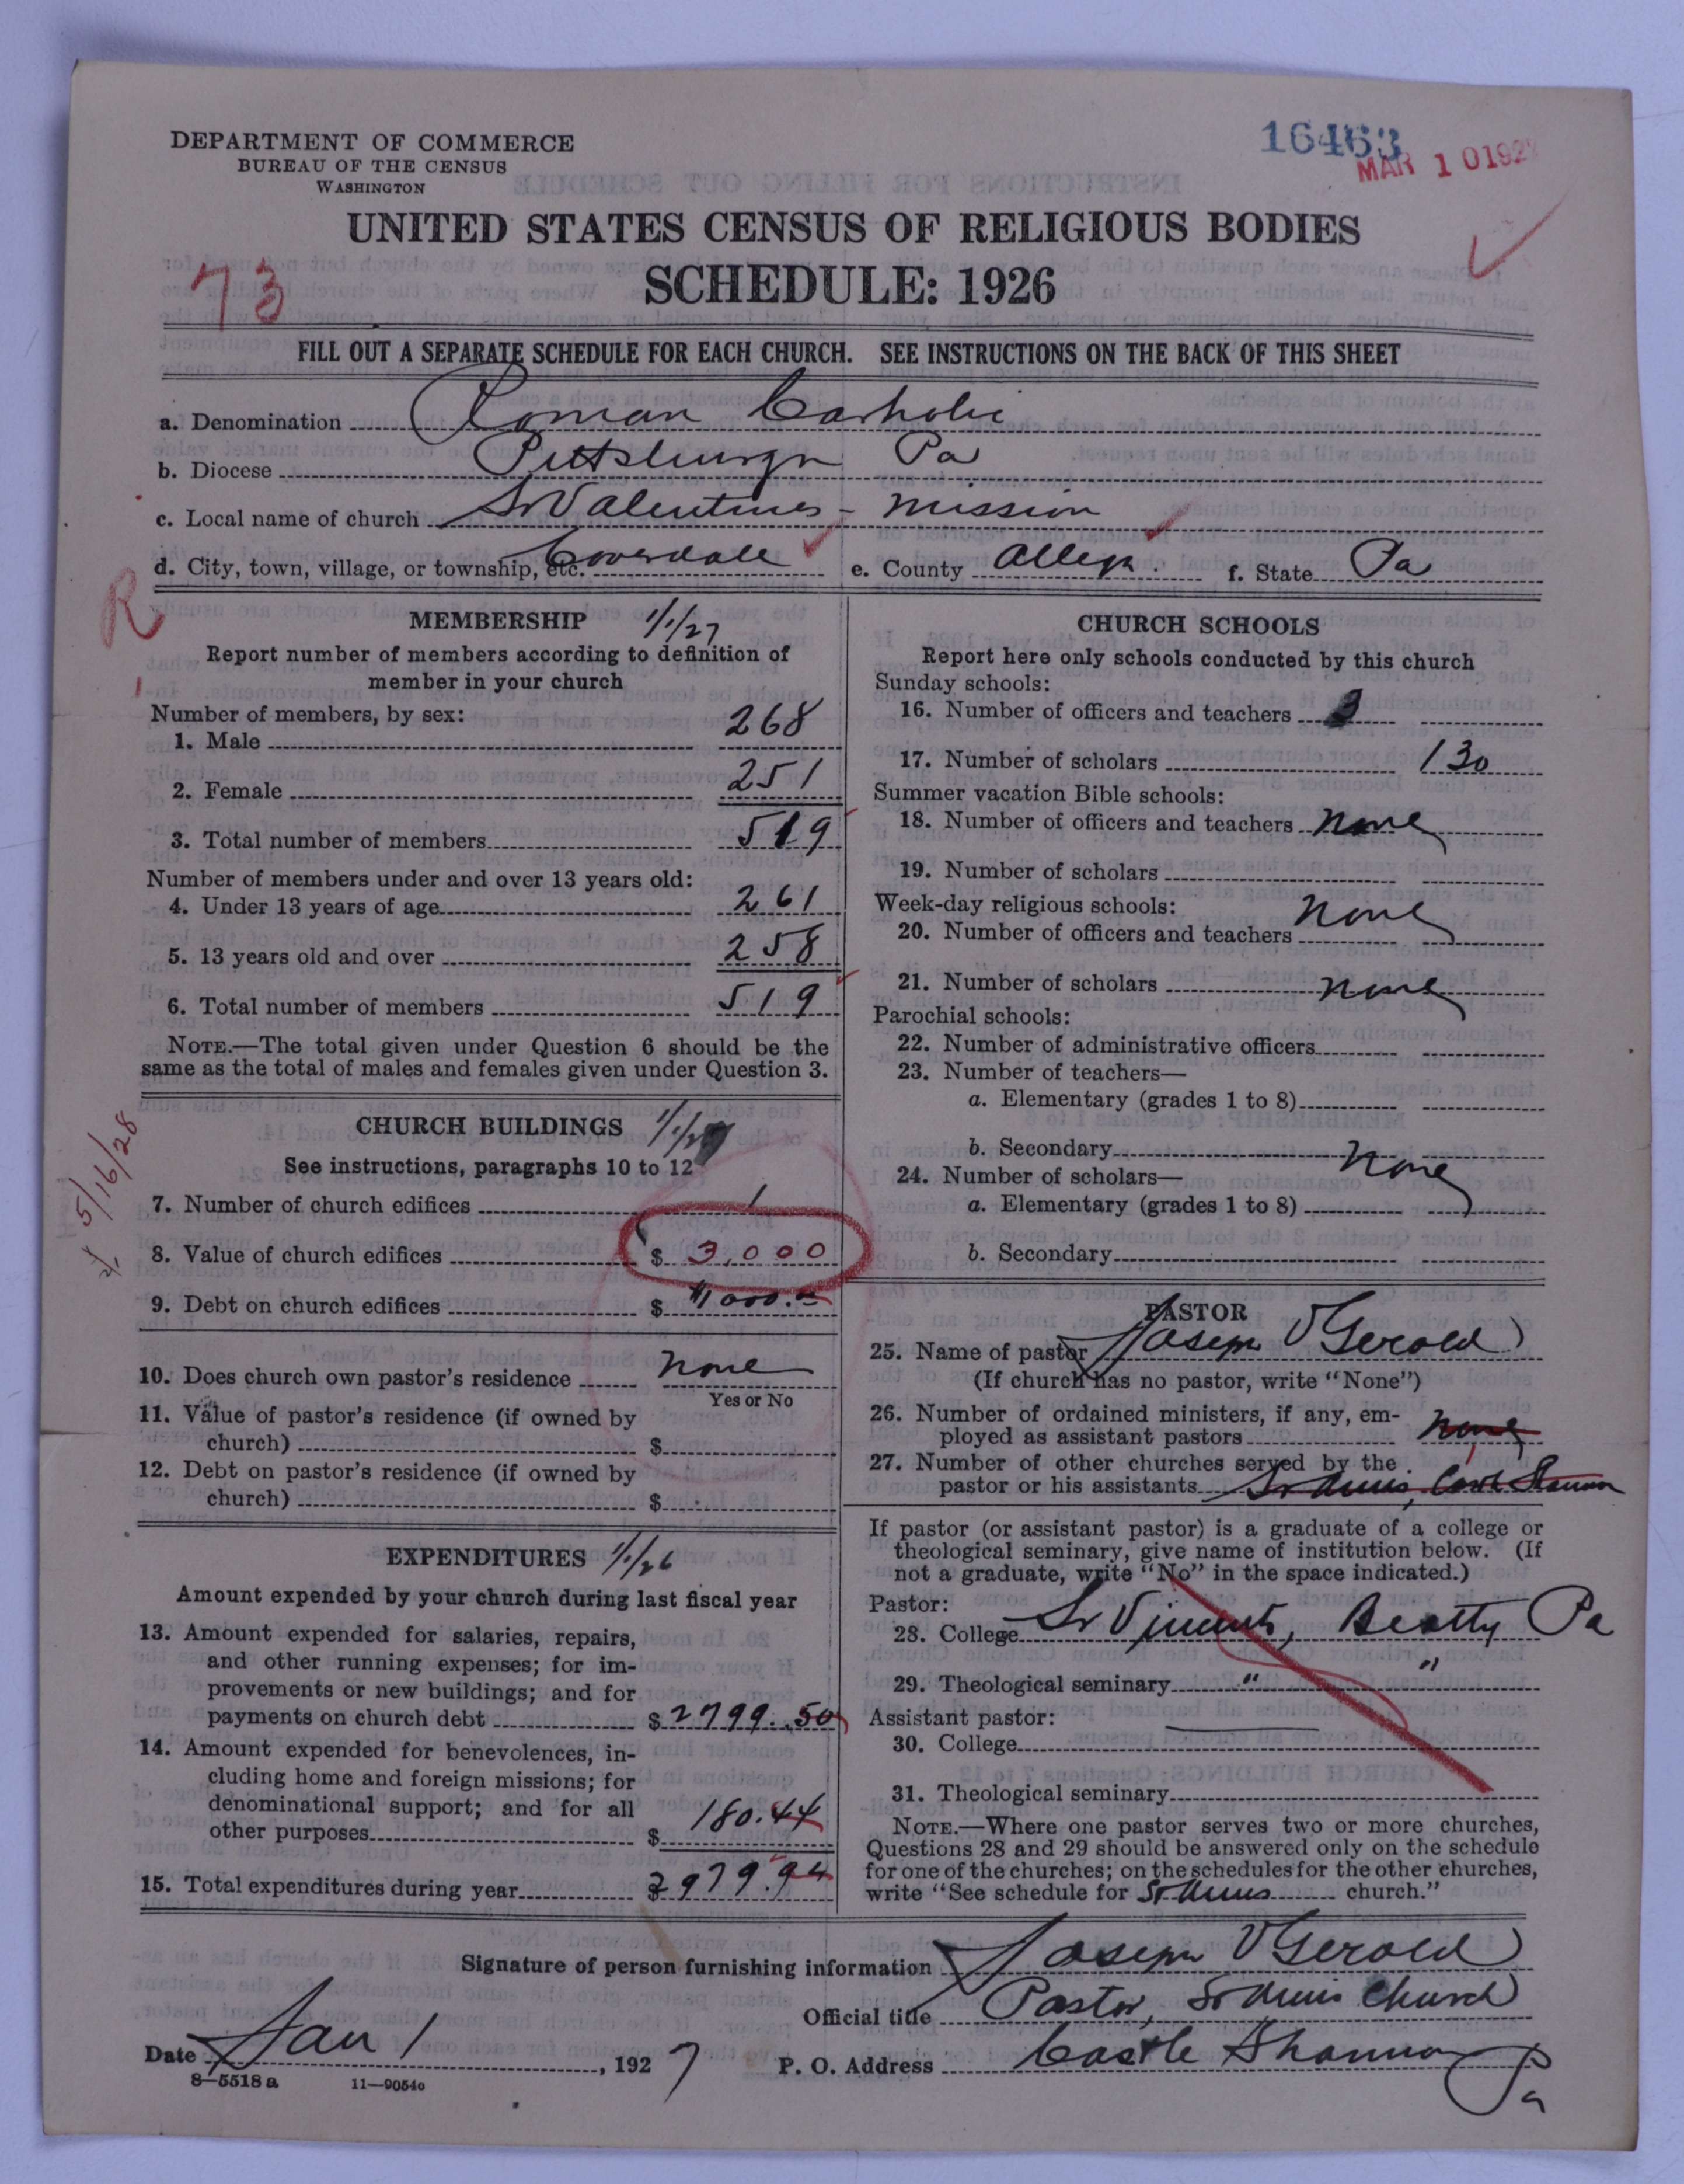 DEPARTMENT OF COMMERCE
BUREAU OF THE CENSUS
WASHINGTON
16463
MAR 10 1927
UNITED STATES CENSUS OF RELIGIOUS BODIES
73
SCHEDULE: 1926
FILL OUT A SEPARATE SCHEDULE FOR EACH CHURCH. SEE INSTRUCTIONS ON THE BACK OF THIS SHEET
a. Denomination Roman Catholic
b. Diocese Pittsburgh Pa
c. Local name of church St Valentines - Mission
d. City, town, village, or township, etc. Coverdale e. County Allegh. f. State Pa
R
MEMBERSHIP 1/1/27
Report number of members according to definition of
member in your church
Number of members, by sex:
1. Male 268
2. Female 251
3. Total number of members 519
Number of members under and over 13 years old:
4. Under 13 years of age 261
5. 13 years old and over 258
6. Total number of members 519
NOTE.—The total given under Question 6 should be the
same as the total of males and females given under Question 3.
CHURCH BUILDINGS 1/1/27
See instructions, paragraphs 10 to 12
5/16/28
7. Number of church edifices 1
8. Value of church edifices $ 3,000
9. Debt on church edifices $
10. Does church own pastor's residence none
Yes or No
11. Value of pastor's residence (if owned by
church) $
12. Debt on pastor's residence (if owned by
church) $
EXPENDITURES 1/1/26
Amount expended by your church during last fiscal year
13. Amount expended for salaries, repairs,
and other running expenses; for im-
provements or new buildings; and for
payments on church debt $ 2799.50
14. Amount expended for benevolences, in-
cluding home and foreign missions; for
denominational support; and for all
other purposes $ 180.44
15. Total expenditures during year $ 2979.94
CHURCH SCHOOLS
Report here only schools conducted by this church
Sunday schools:
16. Number of officers and teachers 3
17. Number of scholars 130
Summer vacation Bible schools:
18. Number of officers and teachers none
19. Number of scholars
Week-day religious schools:
20. Number of officers and teachers none
21. Number of scholars none
Parochial schools:
22. Number of administrative officers
23. Number of teachers—
a. Elementary (grades 1 to 8)
b. Secondary none
24. Number of scholars—
a. Elementary (grades 1 to 8)
b. Secondary
PASTOR
25. Name of pastor Joseph V Gerold
(If church has no pastor, write "None")
26. Number of ordained ministers, if any, em-
ployed as assistant pastors none
27. Number of other churches served by the
pastor or his assistants St Annes, Castle Shannon
If pastor (or assistant pastor) is a graduate of a college or
theological seminary, give name of institution below. (If
not a graduate, write "No" in the space indicated.)
Pastor:
28. College St Vincents, Beatty Pa
29. Theological seminary " "
Assistant pastor:
30. College
31. Theological seminary
NOTE.—Where one pastor serves two or more churches,
Questions 28 and 29 should be answered only on the schedule
for one of the churches; on the schedules for the other churches,
write "See schedule for St. Annes church."
Signature of person furnishing information Joseph V Gerold
Official title Pastor, St Annes Church
Date Jan 1, 1927 P. O. Address Castle Shannon Pa
8—5518 a 11—9054o